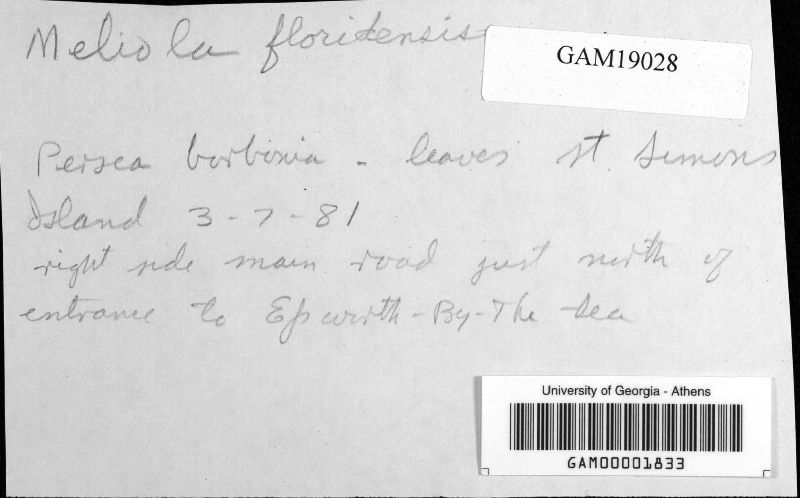 Meliola floridensis
GAM19028
Persea borbonia - leaves St. Simons
Island 3-7-81
right side main road just north of
entrance to Epworth-By-The Sea
University of Georgia - Athens
GAM00001833